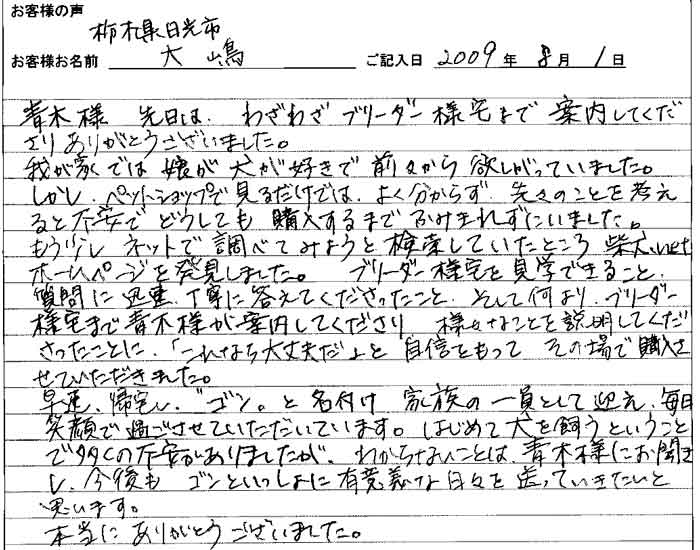 お客様の声
栃木県日光市
お客様お名前 大嶋 ご記入日 2009 年 8 月 1 日
青木様 先日は、わざわざ ブリーダー様宅まで 案内してくだ
さりありがとうございました。
我が家では 娘が 犬が好きで 前々から 欲しがっていました。
しかし、ペットショップで見るだけでは、よく分からず、先々のことを考え
ると不安で どうしても 購入するまで ふみきれずにいました。
もう少し ネットで 調べてみようと 検索していたところ 柴犬
ホームページを発見しました。 ブリーダー様宅を見学できること、
質問に 迅速、丁寧に答えてくださったこと、そして何より、ブリーダー
様宅まで青木様が案内してくださり 様々なことを説明してくだ
さったことに、「これなら大丈夫だ」と 自信をもって その場で購入さ
せていただきました。
早速、帰宅し、"ゴン"。と名付け 家族の一員として迎え、毎日
笑顔で過ごさせていただいています。はじめて犬を飼うということ
で多くの不安がありましたが、わからないことは、青木様にお聞き
し、今後も ゴンといっしょに有意義な日々を送っていきたいと
思います。
本当に ありがとうございました。